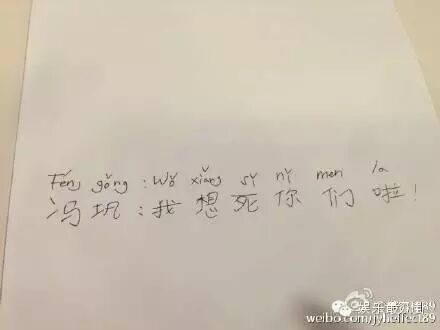 Féng gǒng : Wǒ xiǎng sǐ nǐ men la
冯巩:我想死你们啦!
weibo.com/jybelieci89